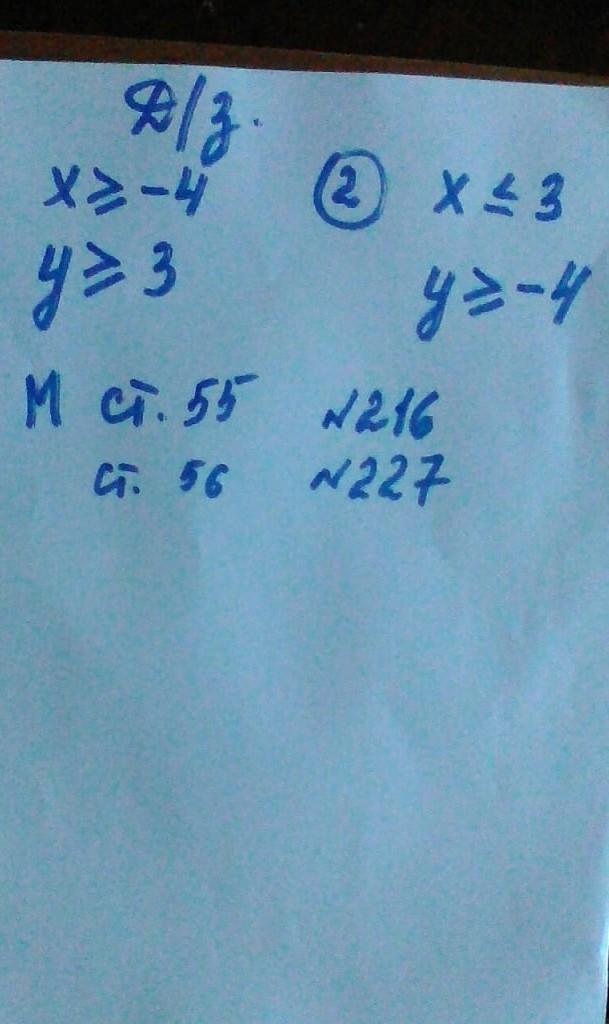 Д/з.
x ≥ -4 ② x ≤ 3
y ≥ 3 y ≥ -4
М ст. 55 №216
ст. 56 №227